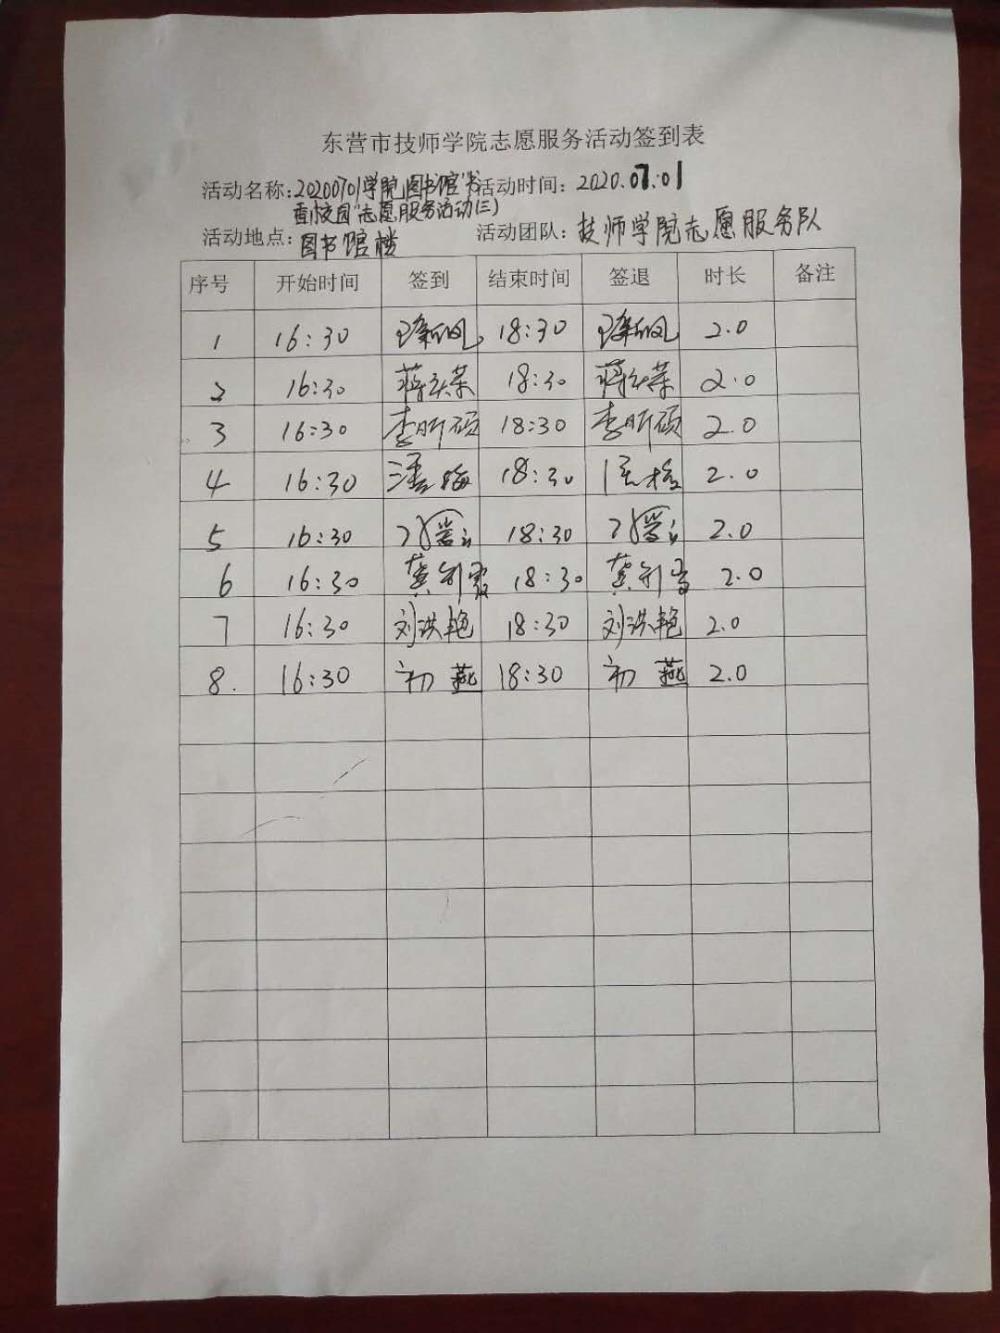 东营市技师学院志愿服务活动签到表
活动名称：20200701学院图书馆"书 活动时间：2020.07.01
香校园"志愿服务活动(三)
活动地点：图书馆楼 活动团队：技师学院志愿服务队
序号 开始时间 签到 结束时间 签退 时长 备注
1 16:30 18:30 2.0
2 16:30 18:30 2.0
3 16:30 李昕硕 18:30 李昕硕 2.0
4 16:30 18:30 2.0
5 16:30 18:30 2.0
6 16:30 18:30 2.0
7 16:30 刘洪艳 18:30 刘洪艳 2.0
8. 16:30 初燕 18:30 初燕 2.0